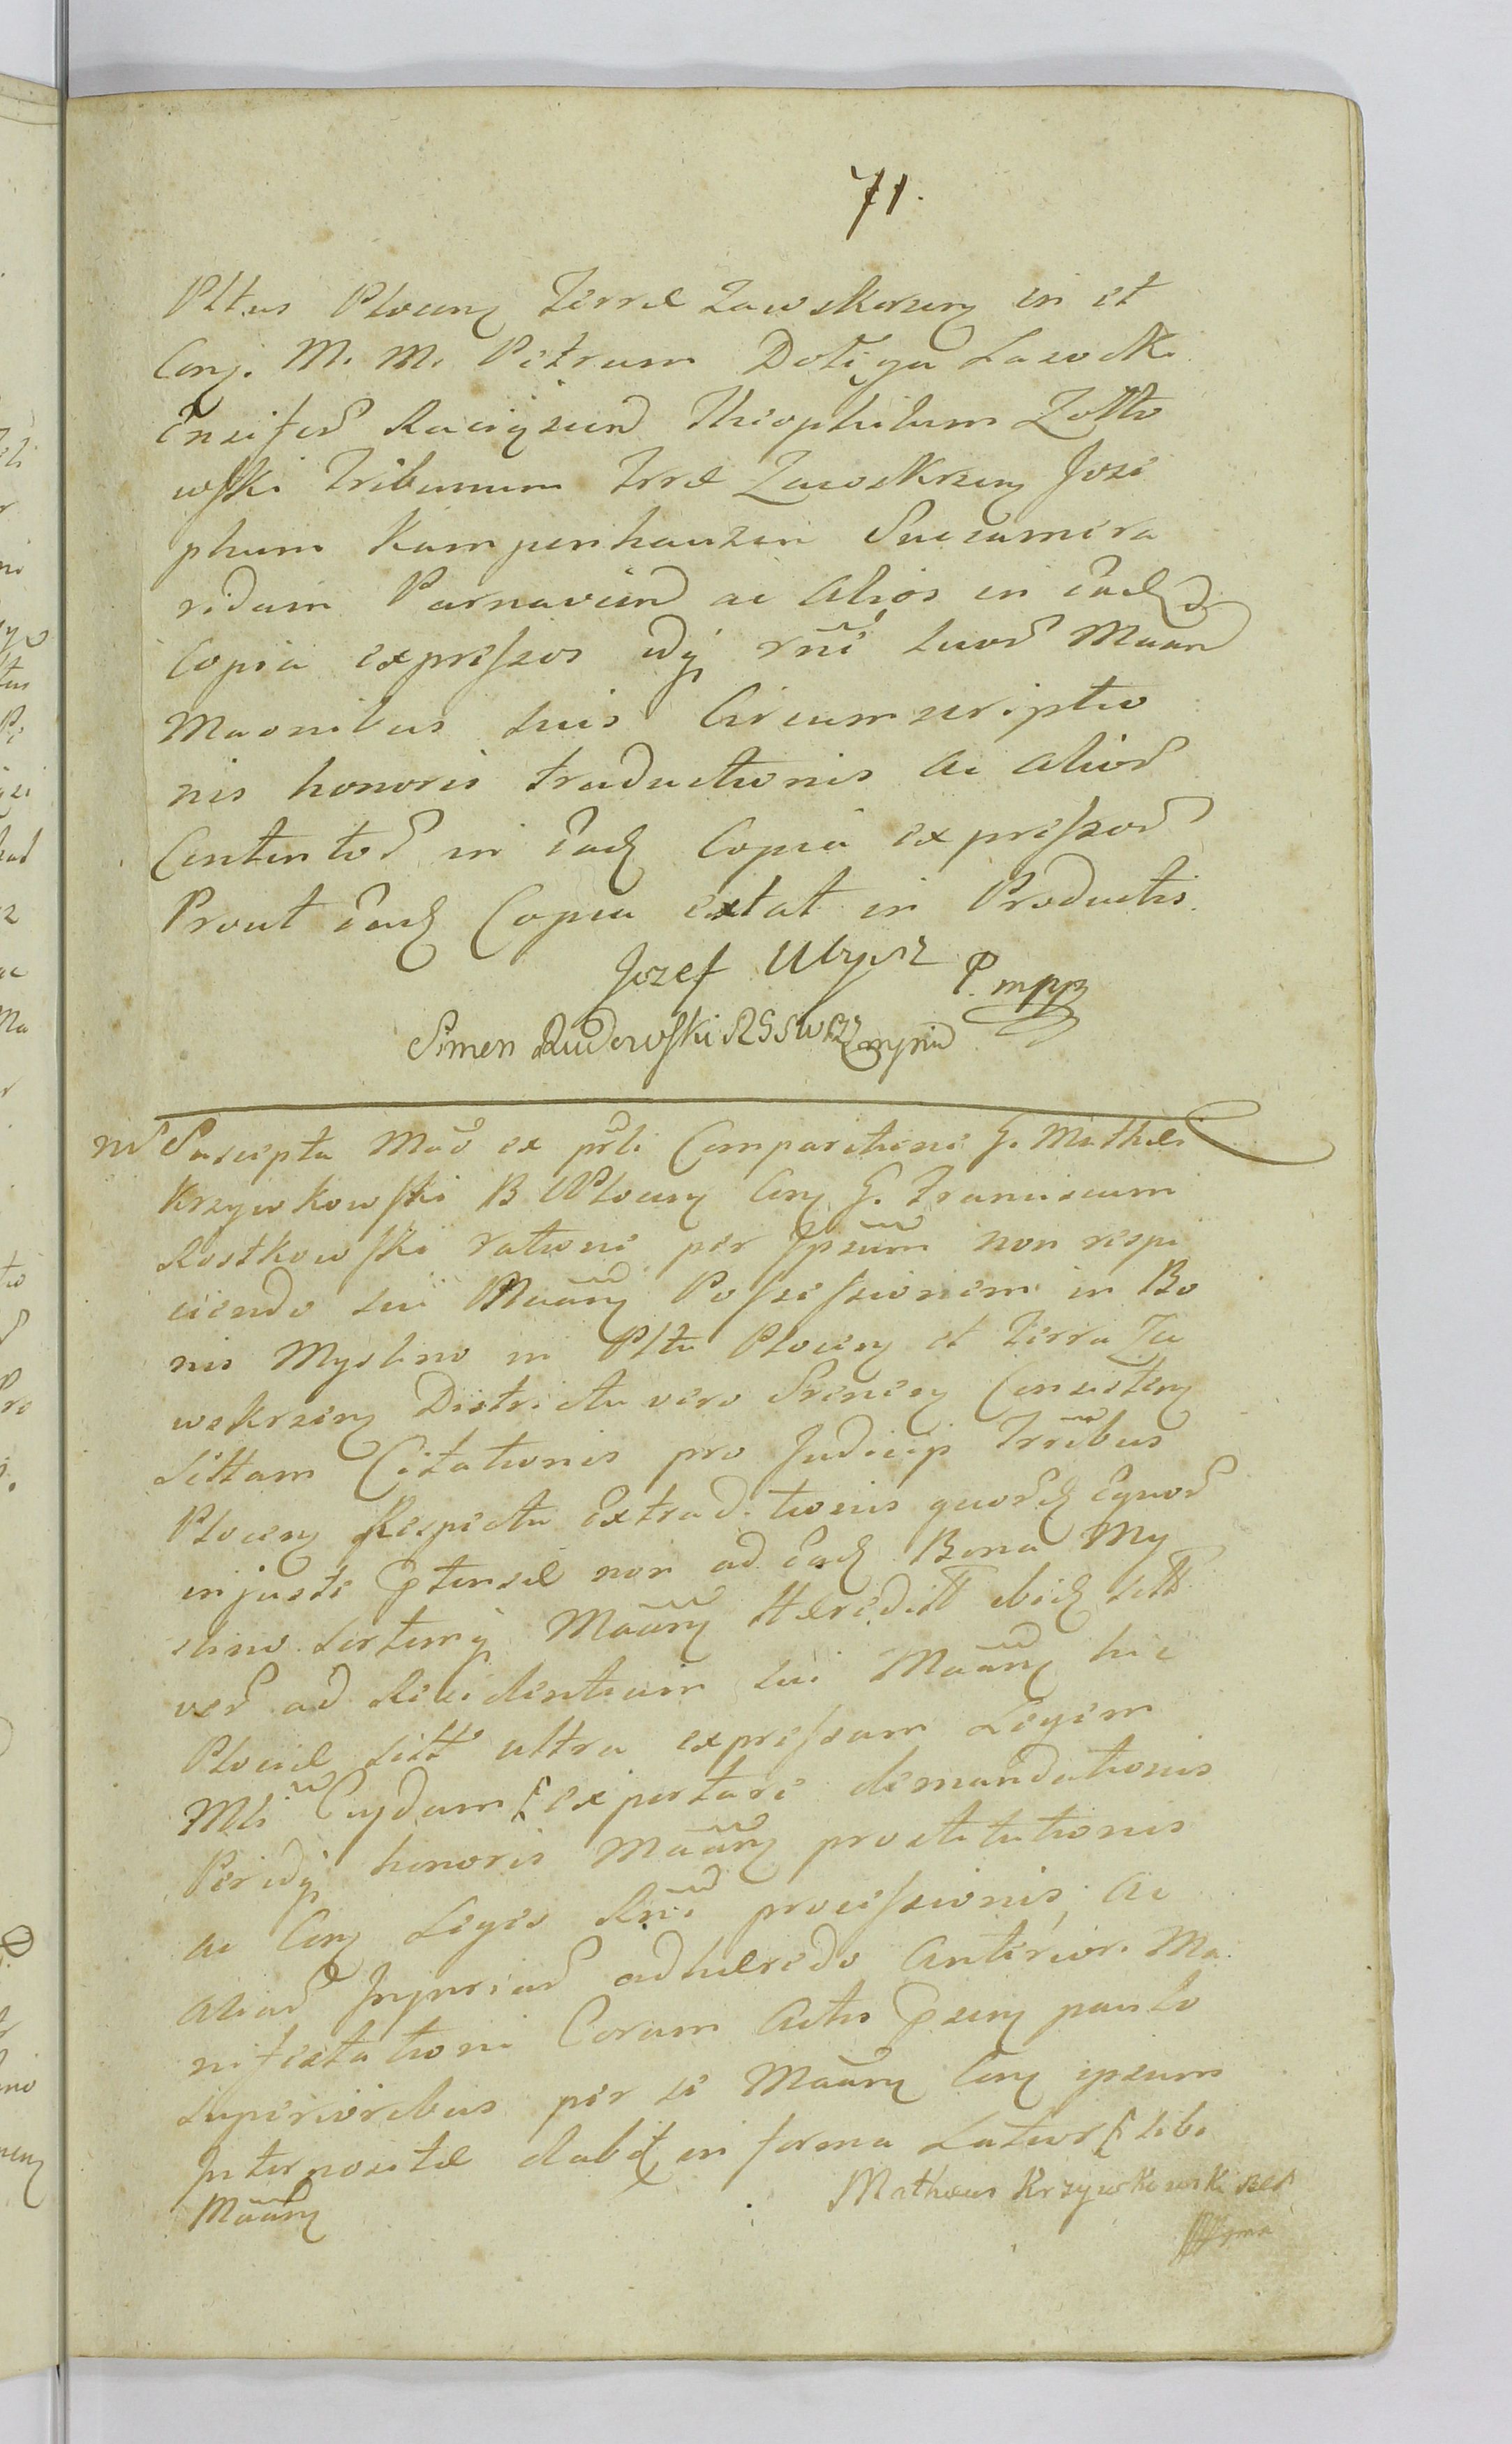 71.
Pltus Plocens Terræ Zawskrzens in et
Cons. M. M. Petrum Doliga Lasocki
Ensifer Raciązien Theophilum Zołto
wski Tribunum Trræ Zawskrzens Jose
phum Kampenhauzen Succamera
ridam Parnavien ac alios in eade
Copia expressos idq rne suor Maan
Maonibus suis Circumscriptio
nis honoris traductionis ac alior
Contentor in ead Copia expressor
Prout ead Copia extat in Productis.
Jozef P. mpp
Simon Rudowski
Suscepta Mao ex prli Comparitione G. Mathei
Krzywkowski B Plocens Cons G. Franciscum
Rostkowski ratione per Ipsum non respi
ciendo sui Maans Possessionem in Bo
nis Myslino in Pltu Plocens et Terra Za
wskrzens Districtu vero Srenens Consistens
Littam Citationis pro Judiciis Trribus
Plocens Respectu Extraditionis quord Equor
injuste ptensæ non ad ead Bona My
slino sortemq Maans Heredit ibid sitt
ver ad Residentiam sui Maans hic
Plociæ sitt ultra expressam Legem
Mli Cuydam exportare demandationis
Per idq honoris Maans prostitutionis
ac Cons Leges Rni processionis, ac
aliar Injuriar adhæredo Anterior. Ma
nifestationi Coram Actis psens paulo
superioribus per se Maans Cons ipsum
Interpositæ dabit in forma Latior sibi
Maans
Matheus Krzywkowski